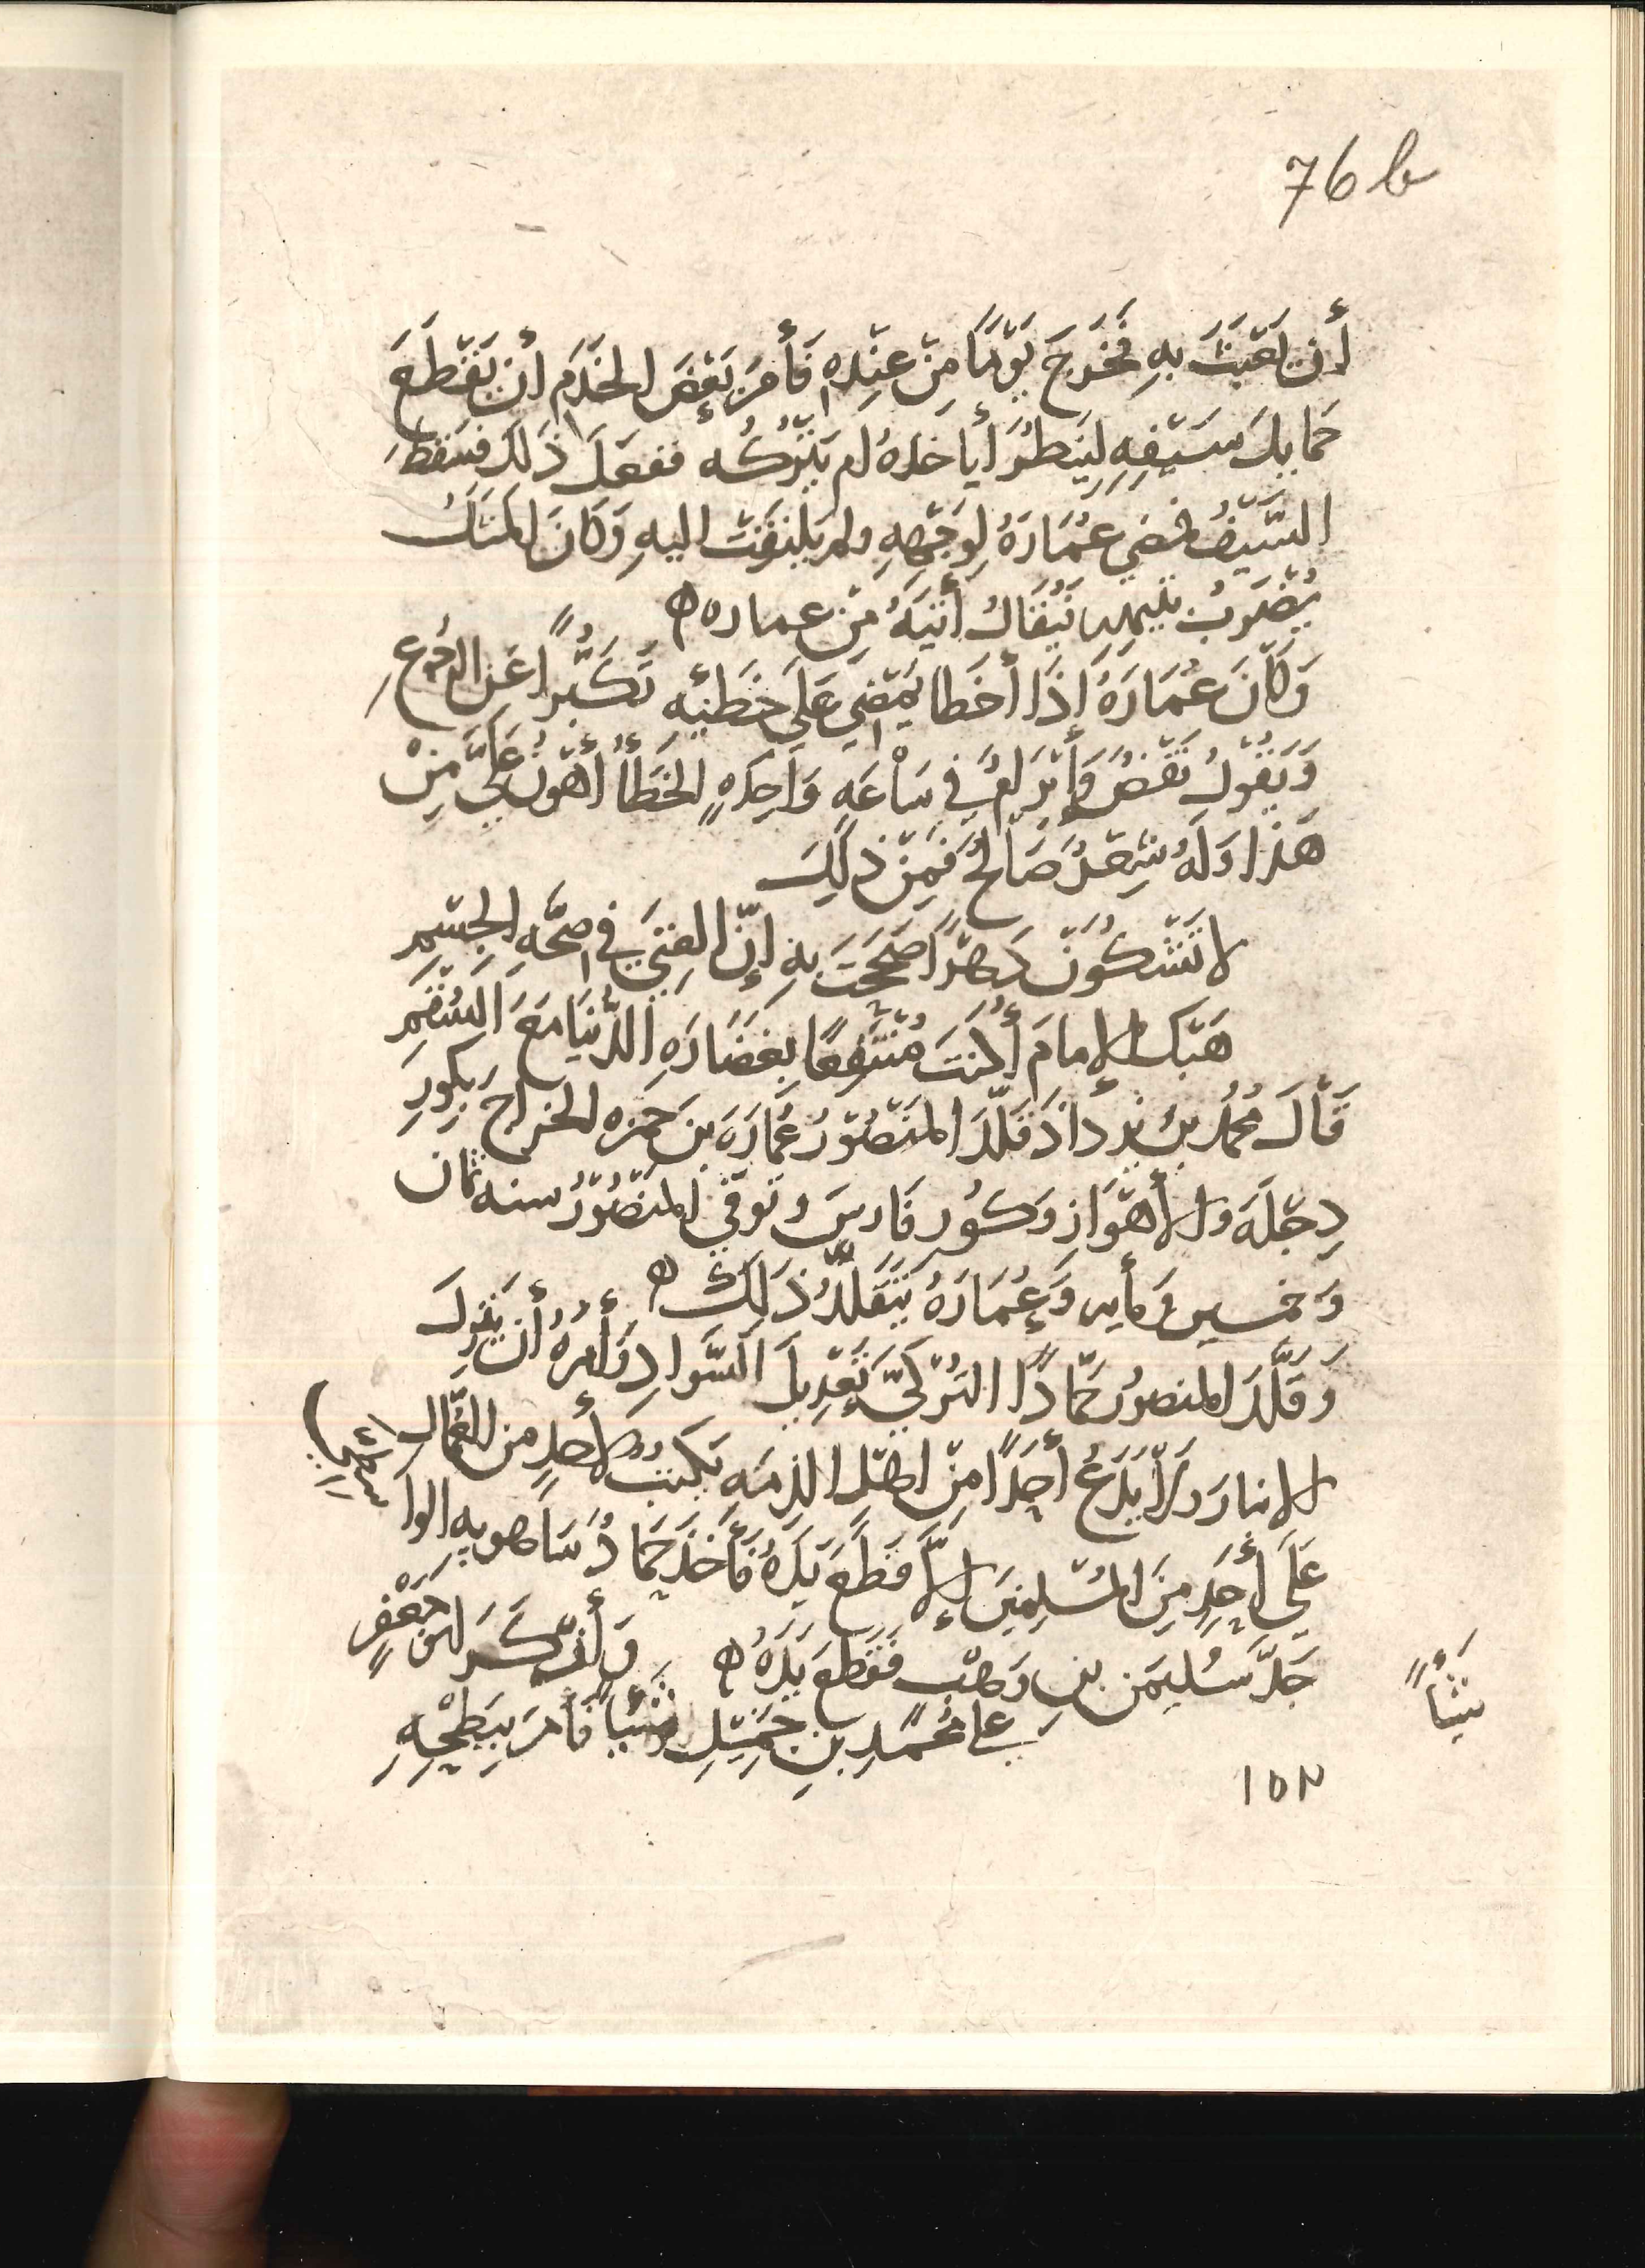 76 b
أن يَعْبَثَ بهِ فَخَرَجَ يَوْمًا مِنْ عِنْدِهِ فَأَمَرَ بَعْضَ الخَدَمِ أن يَقْطَعَ
حَمايلَ سَيْفِهِ لِيَنظُرَ أياخذهُ ام يَتْرُكُه ففعَلَ ذَلِكَ فسَقَطَ
السَّيْفُ فمضي عُمَارَهُ لِوَجْهِهِ ولم يَلتِفَتْ اليهِ وَكانَ المثَلُ
يُضْرَبُ بتيهه يُقَالُ أَتيَهُ مِنْ عماره ه
وَكاَنَ عُمَارَهُ إذَا أخطا يَمْضِي عَلي خَطَئِهِ تَكَبُّراً عَنِ الرجُوعِ
وَيَقُولُ نَقْضٌ وَإبْرَامٌ في سَاْعَهٍ وَاحِدَهٍ الخَطَأُ أهْوَنُ عَلَيَّ مِنْ
هَذا وَلَهُ شِعْرٌ صَالحٌ فَمِنْ ذلِكَ
لا تَشْكُوَنْ دَهْرًا صَحَحْتَ بهِ إنّ الغِنَي في صِحَّهِ الجِسْمِ
هَبْكَ الإمامَ أكُنتَ مُنْتَفِعًا بِغَضَارَهِ الدُّنيَا مَعَ السُّقْمِ
قَاْلَ مُحمُد بنُ يزدأذ قَلَّدَ المَنْصُوْرُ عُمَارَهَ بنَ حَمزه الخراجَ بِكورِ
دِجْلَهَ والأهْوَازِ وَكُوْر فَارسَ وتوفّي المنصُوْرُ سنه ثمان
وَخمسين وَمأيه وَعُمَارَهُ يَتَقَلَّدُ ذَلِكَ ه
وَقَلَّدَ المنصورُ حَمّاداً التُرْكيَّ تَعْدِيلَ السَّوادِ وَأمرهُ أن يَنزِلَ
الانبارَ ولاَ يَدَعَ أحَداً مِنْ اهْلِ الذِمَه يَكتبُ لأحدٍ من العُمَّالِ
عَلَي أحَدٍ مِنَ المُسْلِمِينَ إلاَّ قطَعَ يَدَهُ فأَخَذَ حَمادٌ مَاهويه الوا
جَدَّ سُليمَن بنِ وَهْبٍ فَقَطَعَ يَدَهُ ه وَأنْكَرَ ابُو جَعْفرٍ
شَيْأً
علي مُحمَّدِ بنِ جَمِيْلٍ شَيْأً فأمَرَ بِبَطْحِهِ
١٥٢